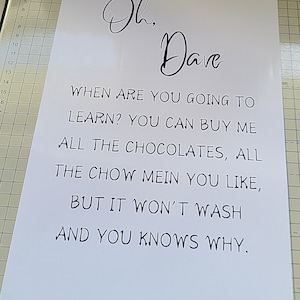 Oh,
Dave
WHEN ARE YOU GOING TO
LEARN? YOU CAN BUY ME
ALL THE CHOCOLATES, ALL
THE CHOW MEIN YOU LIKE,
BUT IT WON'T WASH
AND YOU KNOWS WHY.